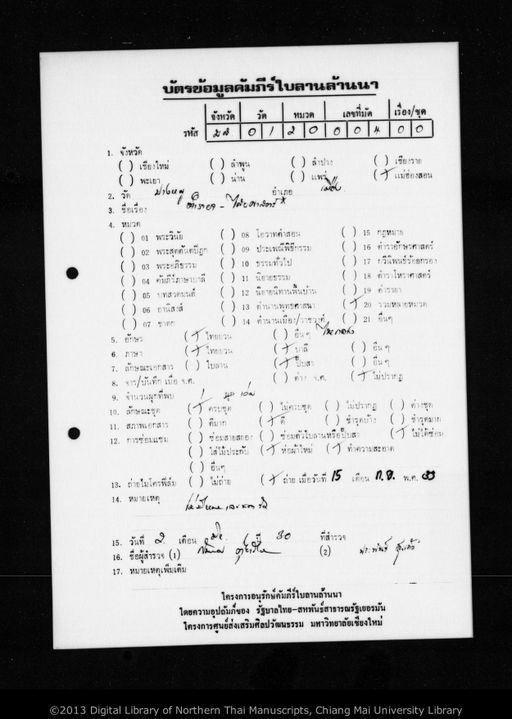 บัตรข้อมูลคัมภีร์ใบลานล้านนา
จังหวัด วัด หมวด เลขที่มัด เรื่อง/ชุด
รหัส 0 1 2 0 0 0 4 0 0
1. จังหวัด
( ) เชียงใหม่ ( ) ลำพูน ( ) ลำปาง ( ) เชียงราย
( ) พะเยา ( ) น่าน ( ) แพร่ (/) แม่ฮ่องสอน
2. วัด อำเภอ เมือง
3. ชื่อเรื่อง
4. หมวด
( ) 01 พระวินัย ( ) 08 โอวาทคำสอน ( ) 15 กฎหมาย
( ) 02 พระสุตตันตปิฎก ( ) 09 ประเพณีพิธีกรรม ( ) 16 ตำราอักษรศาสตร์
( ) 03 พระอภิธรรม ( ) 10 ธรรมทั่วไป ( ) 17 กวีนิพนธ์ร้อยกรอง
( ) 04 คัมภีร์ภาษาบาลี ( ) 11 นิยายธรรม ( ) 18 ตำราโหราศาสตร์
( ) 05 บทสวดมนต์ ( ) 12 นิยายนิทานพื้นบ้าน ( ) 19 ตำรายา
( ) 06 อานิสงส์ ( ) 13 ตำนานพุทธศาสนา (/) 20 รวมหลายหมวด
( ) 07 ชาดก ( ) 14 ตำนานเมือง/ราชวงศ์ ( ) 21 อื่นๆ
5. อักษร (/) ไทยยวน ( ) อื่นๆ
6. ภาษา (/) ไทยยวน (/) บาลี ( ) อื่นๆ
7. ลักษณะเอกสาร ( ) ใบลาน (/) พับสา ( ) อื่นๆ
8. จาร/บันทึก เมื่อ จ.ศ. ( ) ค่าง จ.ศ. (/) ไม่ปรากฏ
9. จำนวนผูกที่พบ 1
10. ลักษณะชุด (/) ครบชุด ( ) ไม่ครบชุด ( ) ไม่ปรากฏ ( ) ต่างชุด
11. สภาพเอกสาร ( ) ดีมาก (/) ดี ( ) ชำรุดบ้าง ( ) ชำรุดมาก
12. การซ่อมแซม ( ) ซ่อมสายสยอง ( ) ซ่อมตัวใบลานหรือปั๊บสา (/) ไม่ได้ซ่อม
( ) ใส่ไม้ประกับ (/) ห่อผ้าใหม่ (/) ทำความสะอาด
( ) อื่นๆ
13. ถ่ายไมโครฟิล์ม ( ) ไม่ถ่าย (/) ถ่าย เมื่อวันที่ 15 เดือน ก.ย. พ.ศ. 33
14. หมายเหตุ
15. วันที่ 2 เดือน ปี 30 ที่สำรวจ
16. ชื่อผู้สำรวจ (1) (2)
17. หมายเหตุเพิ่มเติม
โครงการอนุรักษ์คัมภีร์ใบลานล้านนา
โดยความอุปถัมภ์ของ รัฐบาลไทย-สหพันธ์สาธารณรัฐเยอรมัน
โครงการศูนย์ส่งเสริมศิลปวัฒนธรรม มหาวิทยาลัยเชียงใหม่
©2013 Digital Library of Northern Thai Manuscripts, Chiang Mai University Library